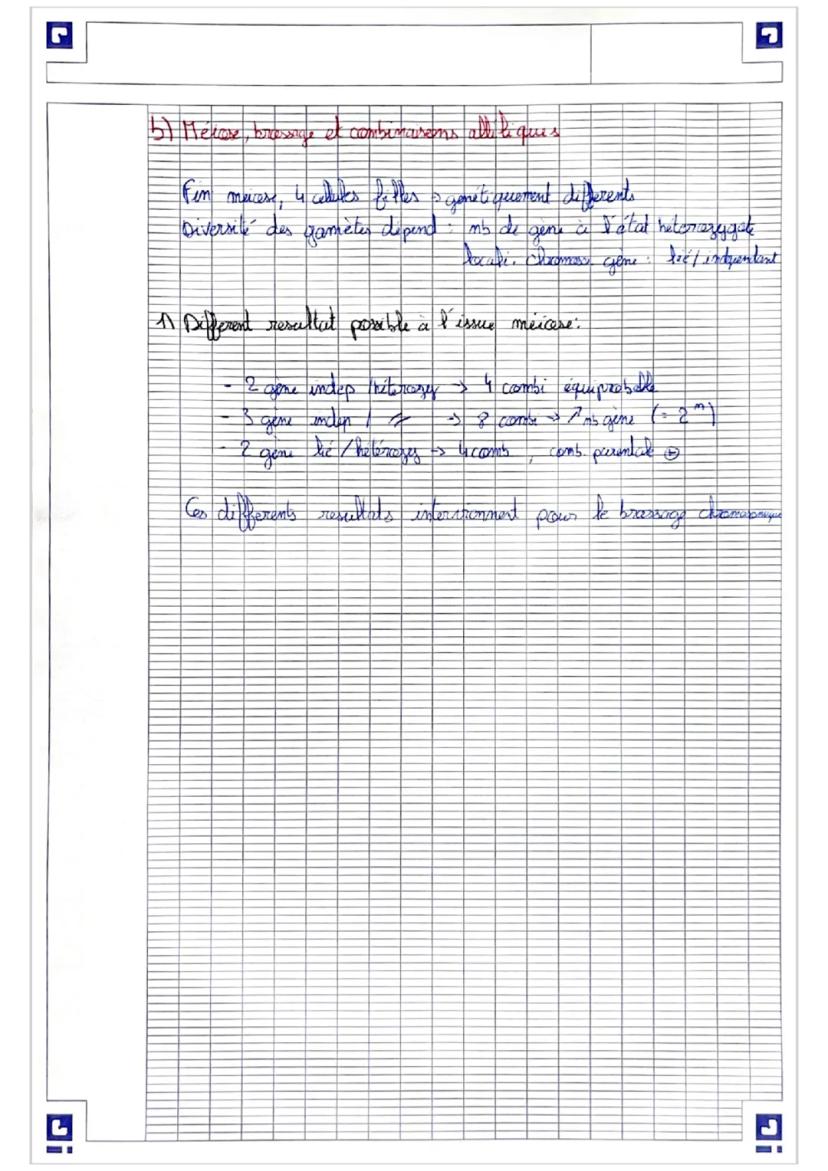 b) Méiose, brassage et combinaisons alléliques
Fin meiose, 4 cellules filles → génétiquement differents
Diversité des gamètes dépend : nb de gène à l'état hétérozygote
locali. chromoso. gène : lié / indépendant
1) Different resultat possible à l'issue méiose :
- 2 gène indep / hétérozyg → 4 combi équiprobable
- 3 gène indep / 〃 → 8 combi → ↗ nb gène (= 2ⁿ)
- 2 gène lié / hétérozyg → 4 comb , comb. parentale ⊕
Ces differents resultats interviennent pour le brassage chromosomique